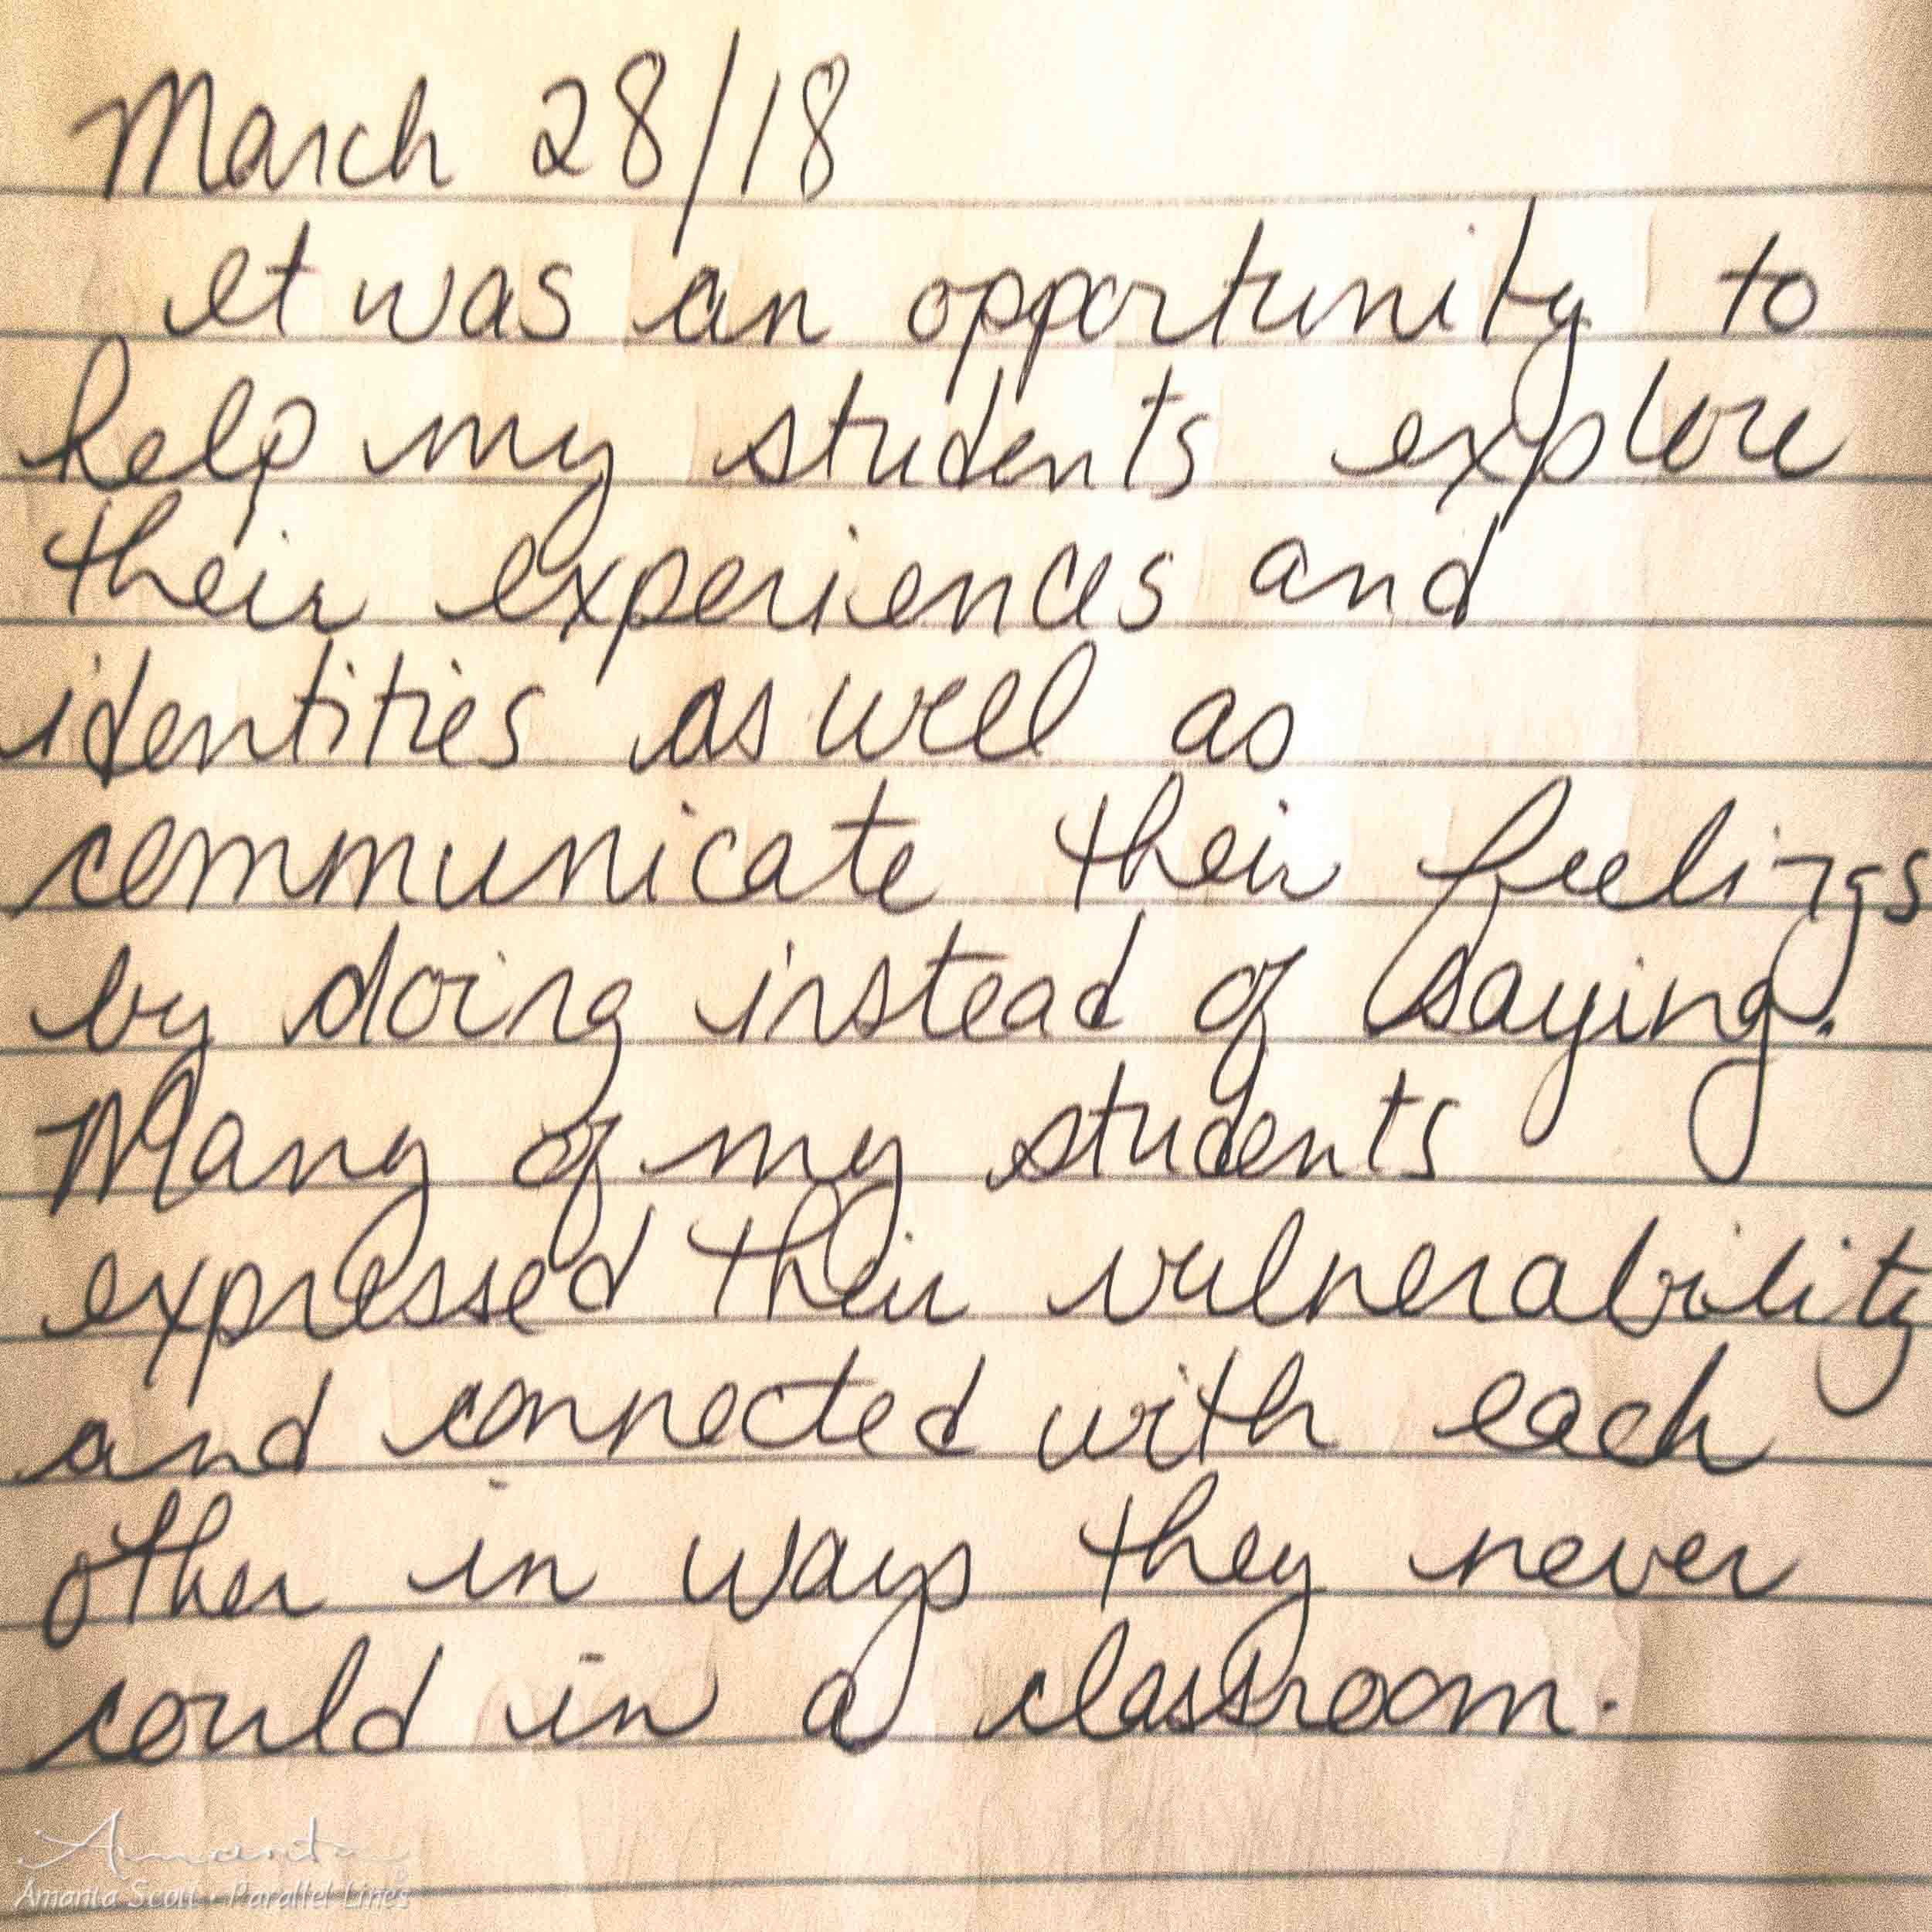 March 28/18
It was an opportunity to
help my students explore
their experiences and
identities as well as
communicate their feelings
by doing instead of saying.
Many of my students
expressed their vulnerability
and connected with each
other in ways they never
could in a classroom.
Amanta
Amanta Scott - Parallel Lines